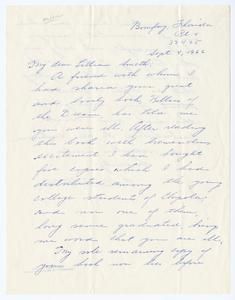 Bowling Florida
Rt. 1
33435
Sept 4, 1966
My dear Lillian Smith:
A friend with whom I
had shared your great
and lovely book Killers of
the Dream has told me
you were ill. After reading
this book with tremendous
excitement I have bought
five copies which I had
distributed among the young
college students of
and now one of them,
long since graduated, bring
me word that you are ill.
My sole remaining copy of
your book now lies before